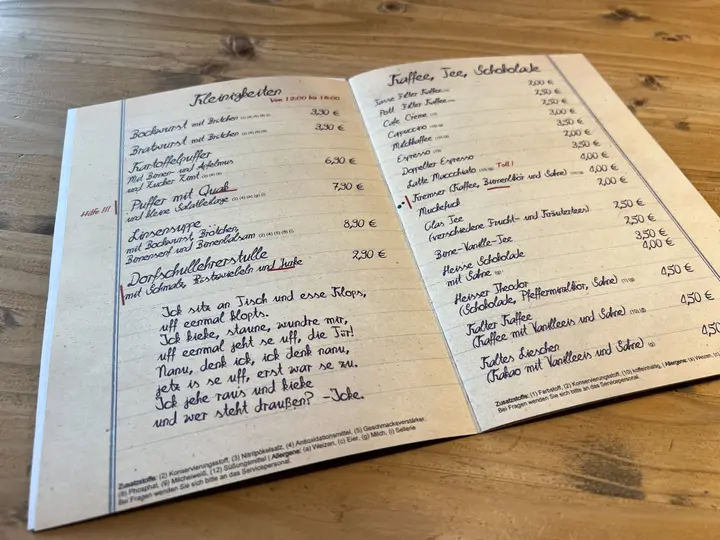 Kleinigkeiten
Von 12:00 bis 18:00
Bockwurst mit Brötchen 3,90 €
Bratwurst mit Brötchen 3,90 €
Kartoffelpuffer 6,90 €
Mit Birnen- und Apfelmus
und Zucker Zimt
Hilfe !!!
Puffer mit Quak 7,90 €
und kleine Salatbeilage
Linsensuppe 8,90 €
mit Bockwurst, Brötchen,
Birnensenf und Birnenbalsam
Dorfschullehrerstulle 2,90 €
mit Schmalz, Röstzwiebeln und Jurke
Ick sitz an Tisch und esse Klops,
uff eenmal klopts.
Ick kieke, staune, wundre mir,
uff eenmal jeht se uff, die Tür!
Nanu, denk ick, ick denk nanu,
jetz is se uff, erst war se zu.
Ick jehe raus und kieke
und wer steht draußen? –Icke.
Zusatzstoffe: (2) Konservierungsstoff, (3) Nitritpökelsalz, (4) Antioxidationsmittel, (5) Geschmacksverstärker,
(8) Phosphat, (9) Milcheiweiß, (12) Süßungsmittel | Allergene: (a) Weizen, (c) Eier, (g) Milch, (i) Sellerie
Bei Fragen wenden Sie sich bitte an das Servicepersonal.
Kaffee, Tee, Schokolade
Tasse Filter Kaffee 2,00 €
Pott Filter Kaffee 2,50 €
Cafe Creme 2,50 €
Cappuccino 3,00 €
Milchkaffee 3,50 €
Espresso 2,00 €
Doppelter Espresso 3,50 €
Latte Macchiato Toll! 4,00 €
Kremser (Kaffee, Birnenlikör und Sahne) 4,00 €
Muckefuck 2,00 €
Glas Tee 2,50 €
(verschiedene Frucht- und Kräutertees)
Birne-Vanille-Tee 2,50 €
Heisse Schokolade 3,50 €
mit Sahne 4,00 €
Heisser Theodor 4,50 €
(Schokolade, Pfefferminzlikör, Sahne)
Kalter Kaffee 4,50 €
(Kaffee mit Vanilleeis und Sahne)
Kaltes Lieschen 4,50 €
(Kakao mit Vanilleeis und Sahne)
Zusatzstoffe: (1) Farbstoff, (2) Konservierungsstoff, (10) koffeinhaltig, | Allergene: (a) Weizen, (c)
Bei Fragen wenden Sie sich bitte an das Servicepersonal.